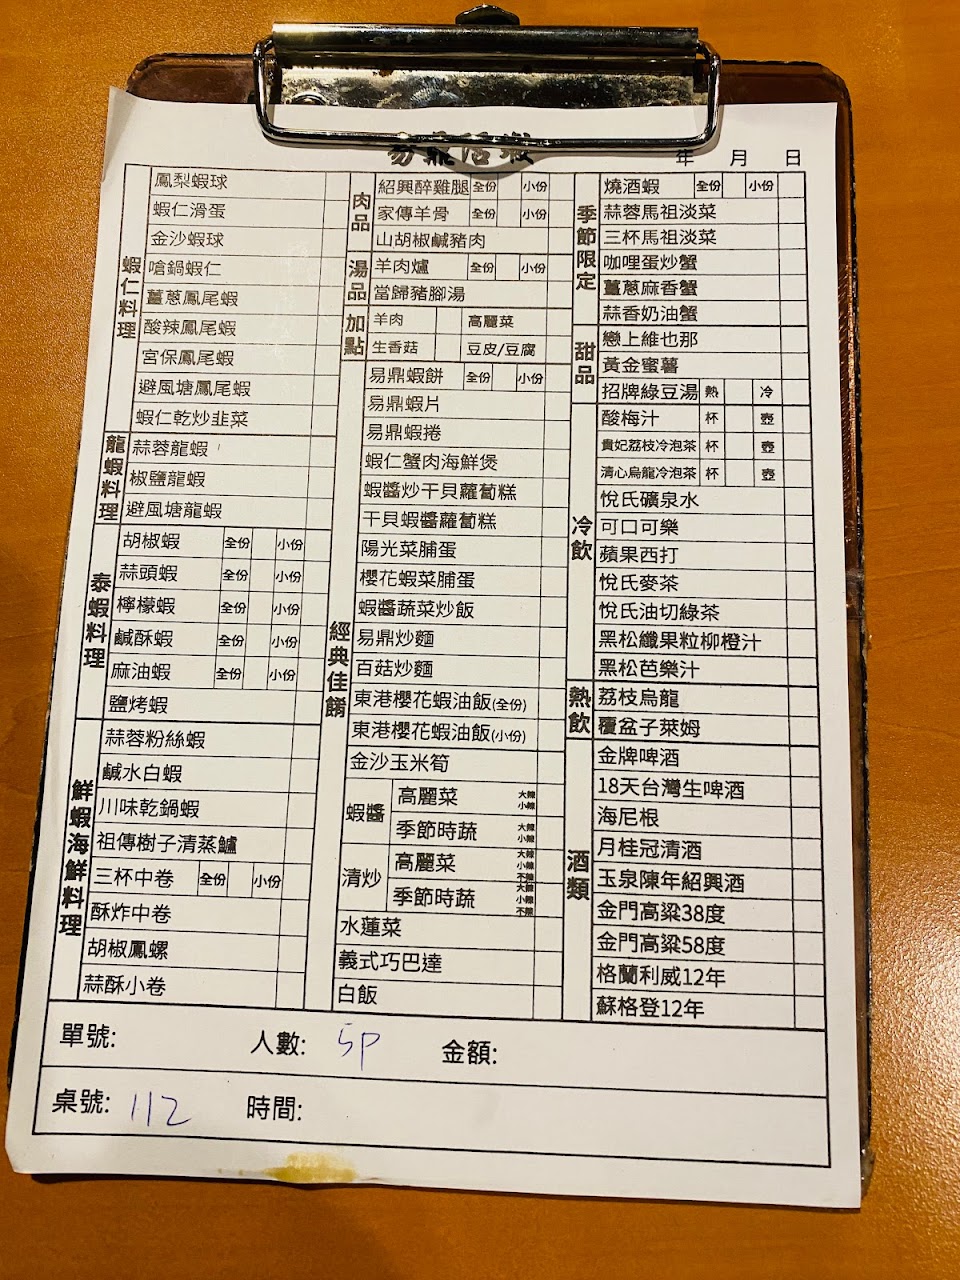 易鼎活蝦
年 月 日
蝦仁料理
鳳梨蝦球
蝦仁滑蛋
金沙蝦球
嗆鍋蝦仁
薑蔥鳳尾蝦
酸辣鳳尾蝦
宮保鳳尾蝦
避風塘鳳尾蝦
蝦仁乾炒韭菜
龍蝦料理
蒜蓉龍蝦
椒鹽龍蝦
避風塘龍蝦
泰蝦料理
胡椒蝦 全份 小份
蒜頭蝦 全份 小份
檸檬蝦 全份 小份
鹹酥蝦 全份 小份
麻油蝦 全份 小份
鹽烤蝦
鮮蝦海鮮料理
蒜蓉粉絲蝦
鹹水白蝦
川味乾鍋蝦
祖傳樹子清蒸鱸
三杯中卷 全份 小份
酥炸中卷
胡椒鳳螺
蒜酥小卷
肉品
紹興醉雞腿 全份 小份
家傳羊骨 全份 小份
山胡椒鹹豬肉
湯品
羊肉爐 全份 小份
當歸豬腳湯
加點
羊肉 高麗菜
生香菇 豆皮/豆腐
經典佳餚
易鼎蝦餅 全份 小份
易鼎蝦片
易鼎蝦捲
蝦仁蟹肉海鮮煲
蝦醬炒干貝蘿蔔糕
干貝蝦醬蘿蔔糕
陽光菜脯蛋
櫻花蝦菜脯蛋
蝦醬蔬菜炒飯
易鼎炒麵
百菇炒麵
東港櫻花蝦油飯(全份)
東港櫻花蝦油飯(小份)
金沙玉米筍
蝦醬
高麗菜 大辣 小辣
季節時蔬 大辣 小辣
清炒
高麗菜 大辣 小辣 不辣
季節時蔬 大辣 小辣 不辣
水蓮菜
義式巧巴達
白飯
季節限定
燒酒蝦 全份 小份
蒜蓉馬祖淡菜
三杯馬祖淡菜
咖哩蛋炒蟹
薑蔥麻香蟹
蒜香奶油蟹
甜品
戀上維也那
黃金蜜薯
招牌綠豆湯 熱 冷
冷飲
酸梅汁 杯 壺
貴妃荔枝冷泡茶 杯 壺
清心烏龍冷泡茶 杯 壺
悅氏礦泉水
可口可樂
蘋果西打
悅氏麥茶
悅氏油切綠茶
黑松纖果粒柳橙汁
黑松芭樂汁
熱飲
荔枝烏龍
覆盆子萊姆
酒類
金牌啤酒
18天台灣生啤酒
海尼根
月桂冠清酒
玉泉陳年紹興酒
金門高粱38度
金門高粱58度
格蘭利威12年
蘇格登12年
單號: 人數: 5P 金額:
桌號: 112 時間: